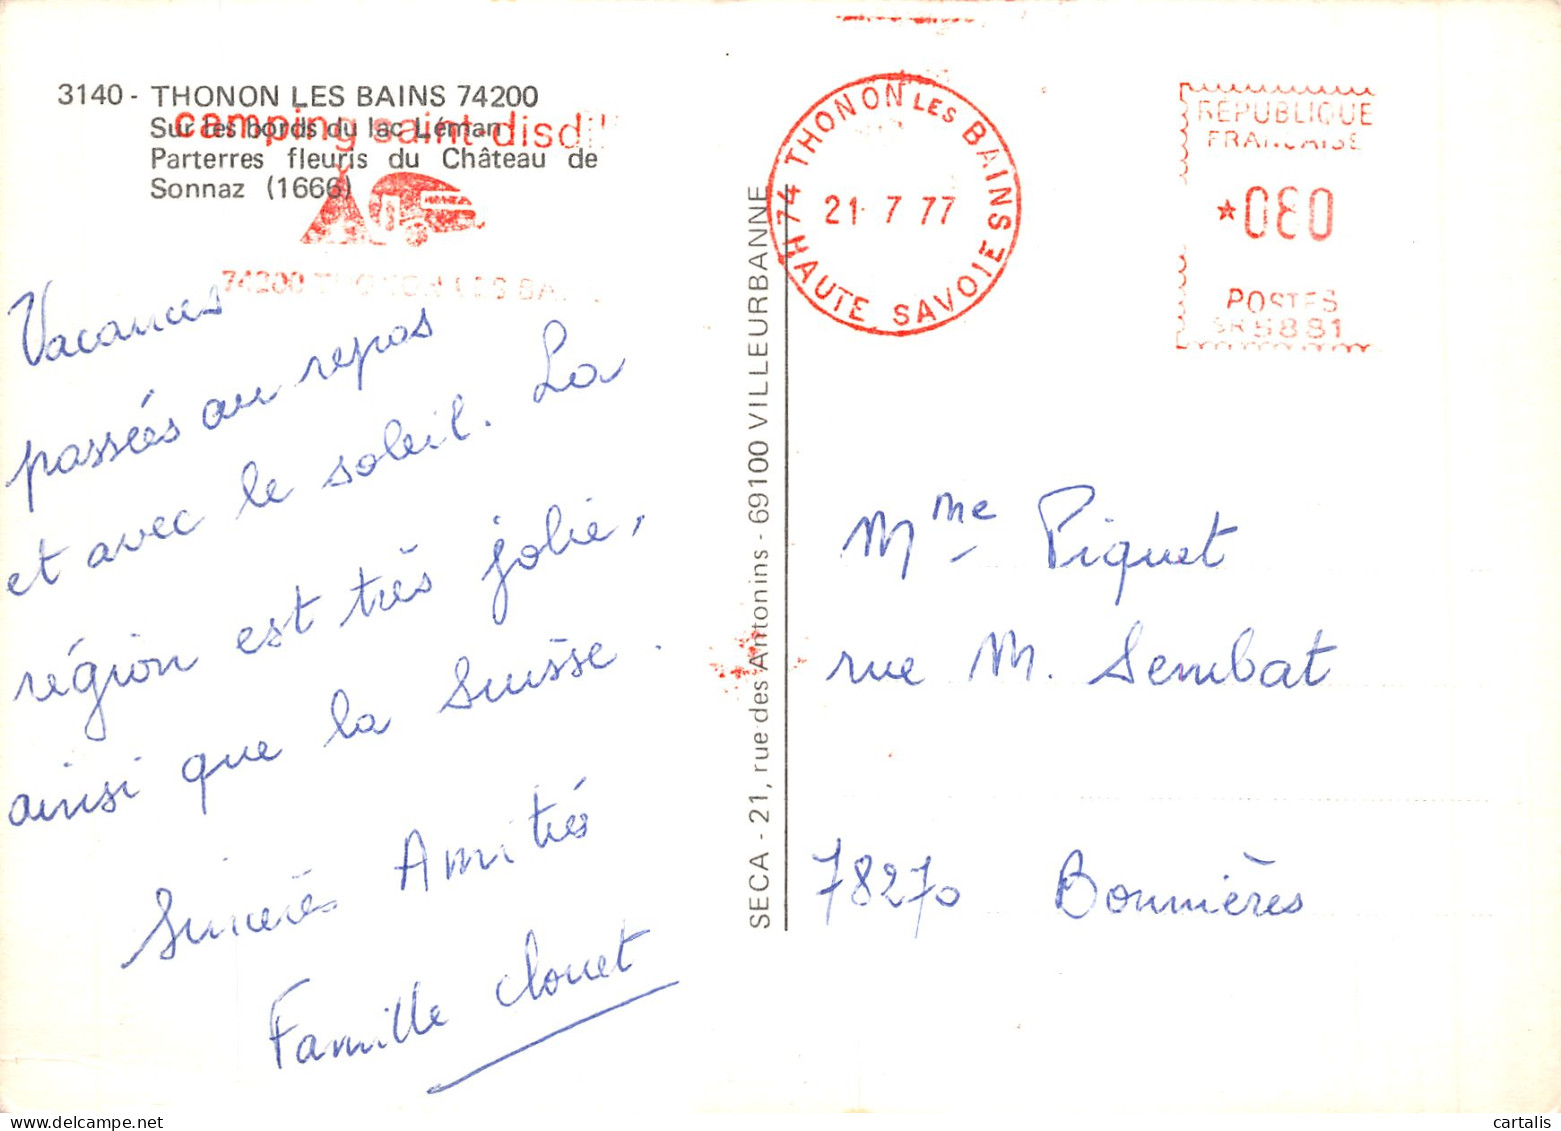 3140 - THONON LES BAINS 74200
Sur les bords du lac Léman
Parterres fleuris du Château de
Sonnaz (1666)
camping saint-disdil
74200 THONON LES BA
Vacances
passées au repos
et avec le soleil. La
région est très jolie,
ainsi que la Suisse.
Sincères Amitiés
Famille Clouet
SECA - 21, rue des Antonins - 69100 VILLEURBANNE
74 THONON LES BAINS
21 7 77
HAUTE SAVOIE
RÉPUBLIQUE
FRANÇAISE
*080
POSTES
Mme Piquet
rue M. Sembat
78270 Bonnières
delcampe.net
cartalis